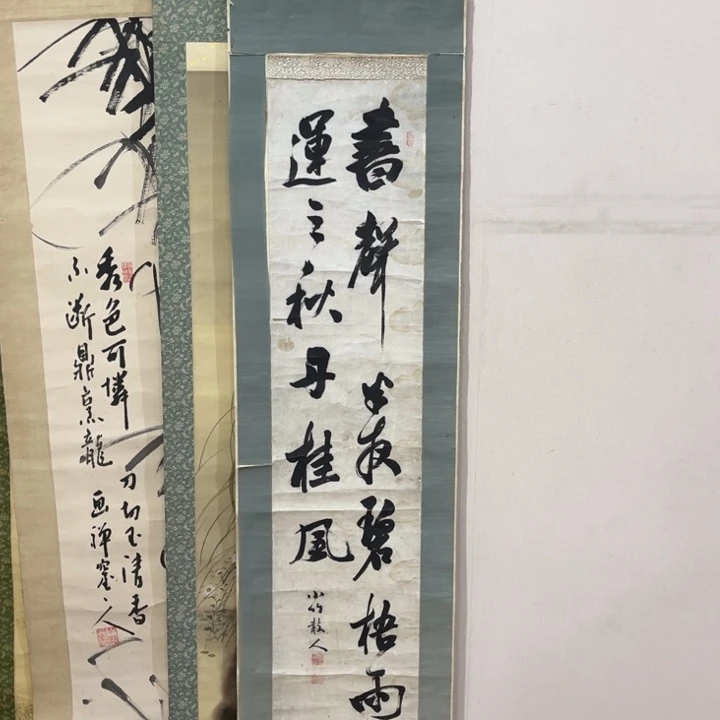 書聲半夜碧梧雨
運三秋丹桂風
小竹散人
秀色可憐刀切玉清香
不斷鼎烹龍
画禅窟人